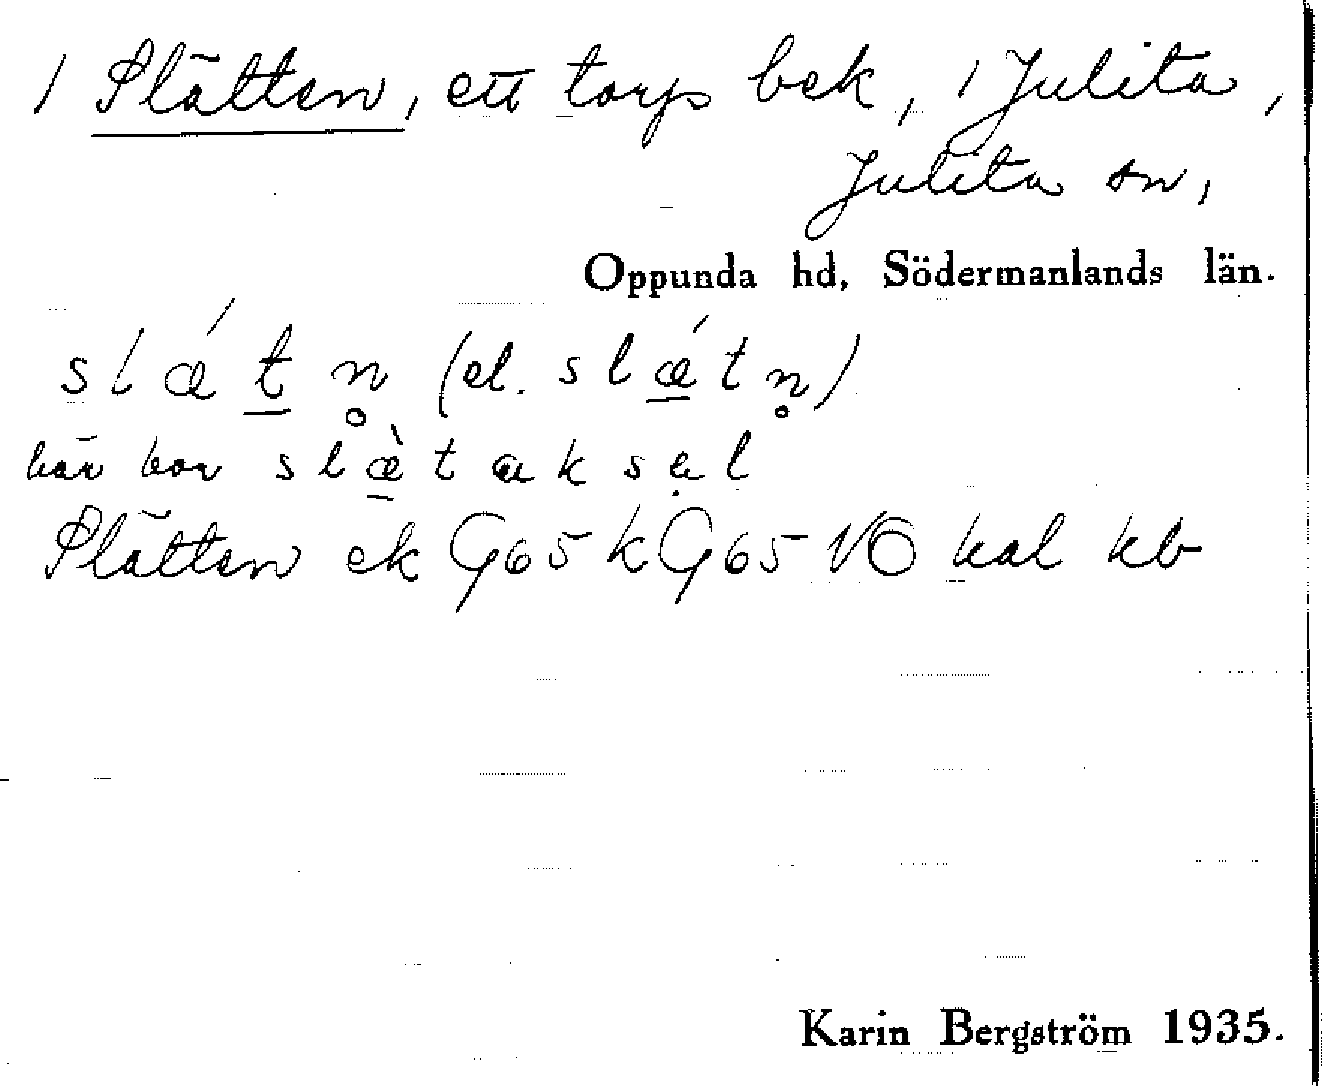 1 Slätten, ett torp bek, i Julita,
Julita sn,
Oppunda hd, Södermanlands län.
slǽt̲n̥ (el. slǽ̲tn̥)
här bor slæ̲̀taksəl
Slätten ek G65 k G65 NO kal kb
Karin Bergström 1935.